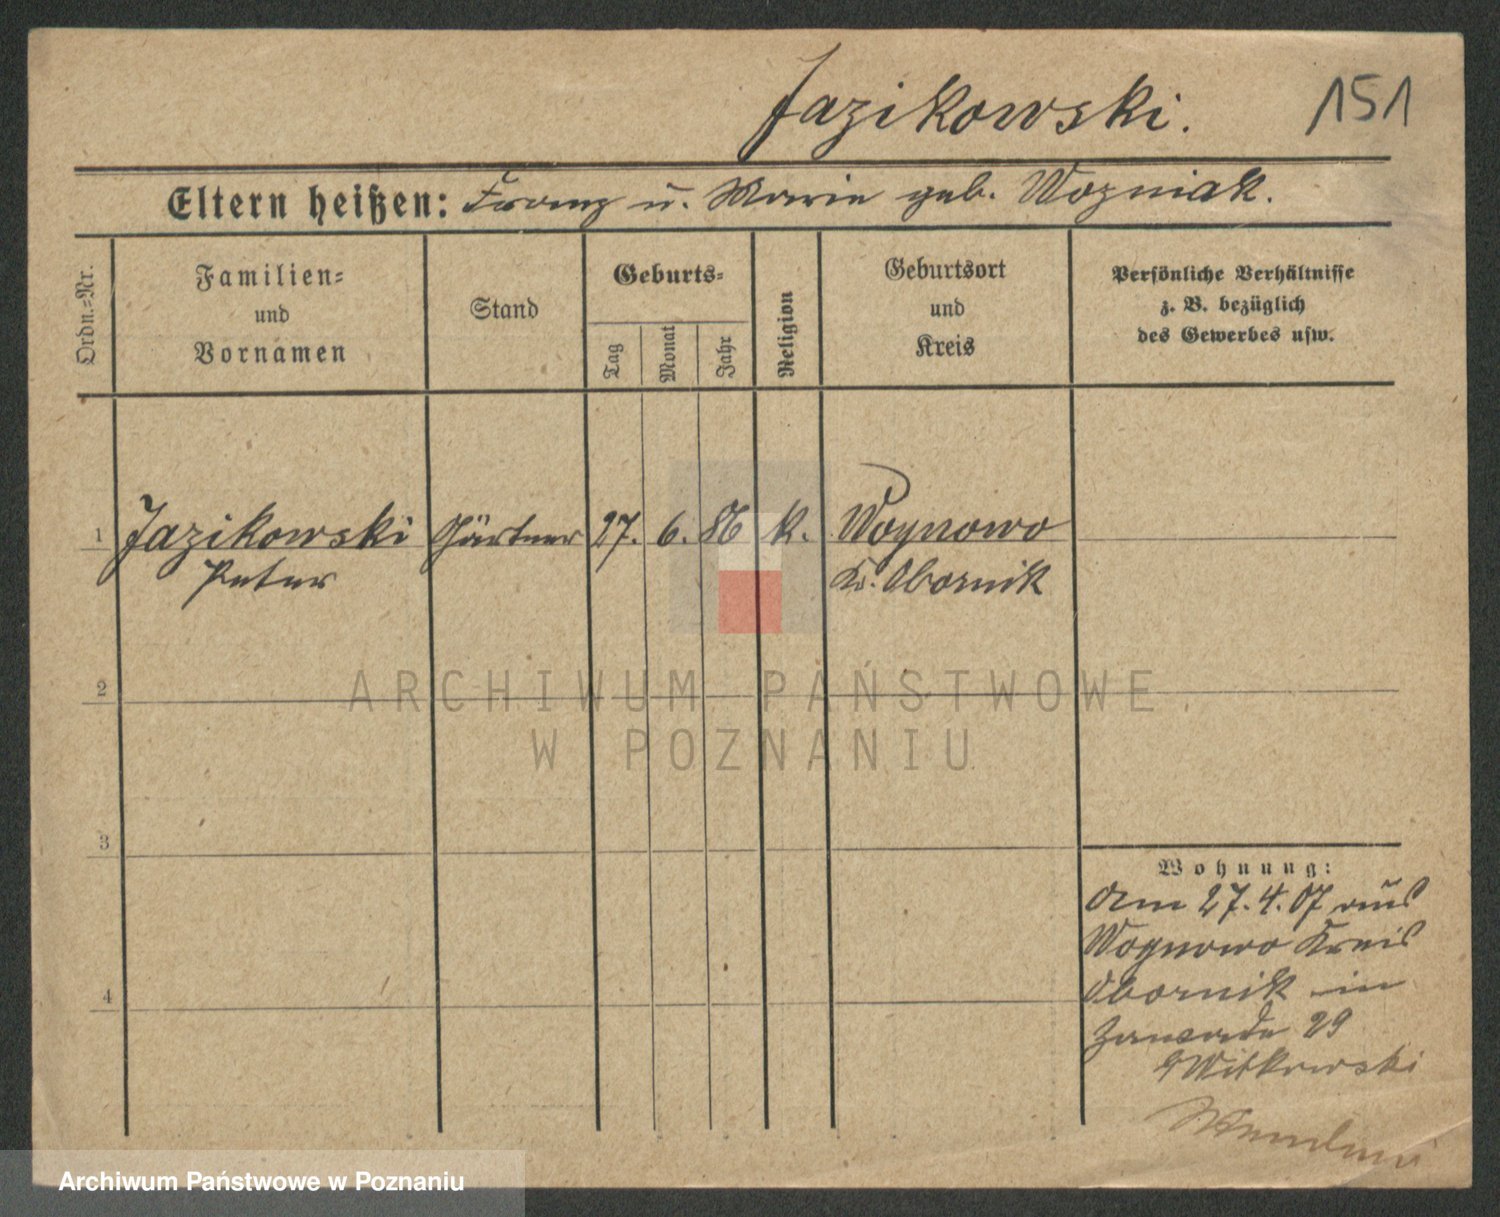 Jazikowski.
151
Eltern heißen: Franz u. Marie geb. Wozniak.
Ordn.-Nr.
Familien-
und
Vornamen
Stand
Geburts-
Tag
Monat
Jahr
Religion
Geburtsort
und
Kreis
Persönliche Verhältnisse
z. B. bezüglich
des Gewerbes usw.
1 Jazikowski Gärtner 27. 6. 86 k. Wognowo
Peter Kr. Obornik
2
3
4
Wohnung:
Am 27.4.07 aus
Wognowo Kreis
Obornik in
Zawade 29
Witkowski
ARCHIWUM PAŃSTWOWE
W POZNANIU
Archiwum Państwowe w Poznaniu